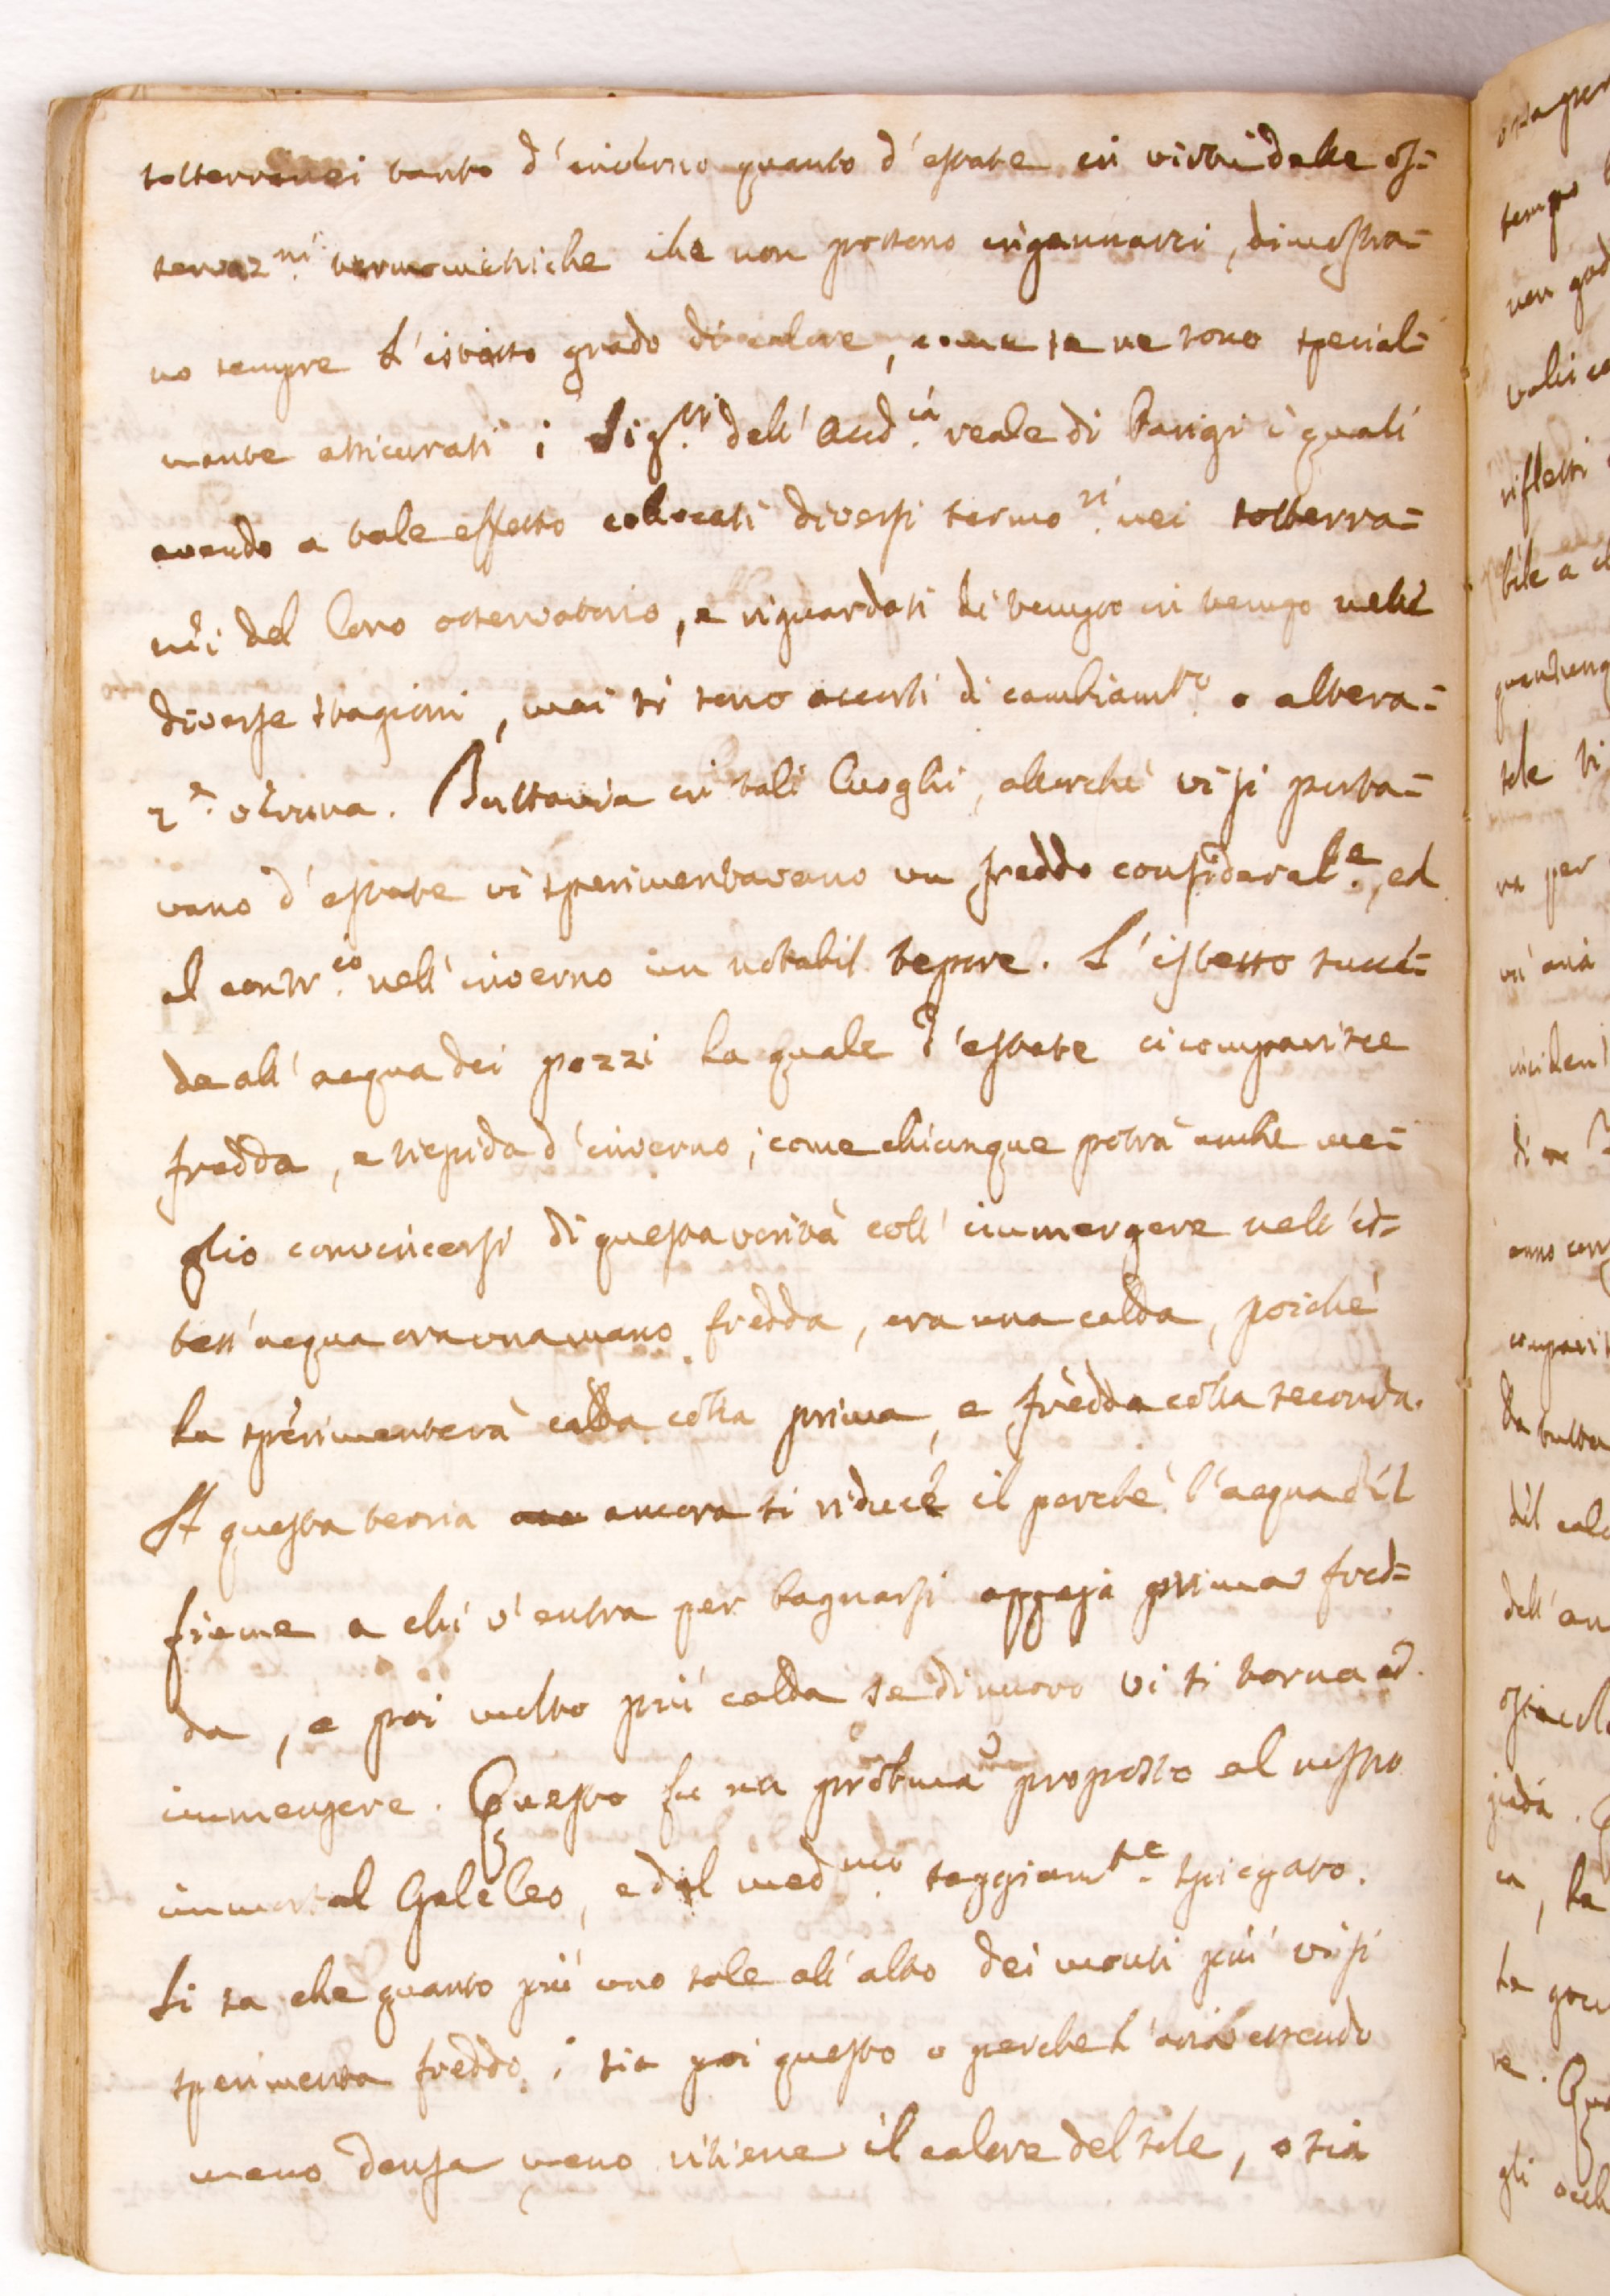 sotterranei tanto d'inverno quanto d'estate in virtù delle os=
servaz.ni termometriche che non possono ingannarci, dimostra=
no sempre l'istesso grado di calore, come se ne sono special=
mente assicurati i Sig.ri dell'Accd.cia reale di Parigi i quali
avendo a tale effetto collocati diversi termo.ri nei sotterra=
nei del loro osservatorio, e riguardati di tempo in tempo nelle
diverse stagioni, mai si sono accorti di cambiam.to o altera=
z.e veruna. Tuttavia in tali luoghi, allorché vi si porta=
vano d'estate vi sperimentavano un freddo considerab.le, ed
al contr.io nell'inverno un notabil tepore. L'istesso succe=
de all'acqua dei pozzi la quale d'estate ci comparisce
fredda, e tiepida d'inverno; come chiunque potrà anche me=
glio convincersi di questa verità coll'immergere nell'is=
tess'acqua ora una mano fredda, ora una calda, poiché
la sperimenterà calda colla prima, e fredda colla seconda.
A questa teoria ancora si riduce il perché l'acqua del
fiume a chi v'entra per bagnarsi appaja prima fred=
da, e poi molto più calda se di nuovo vi si torna ad
immergere. Questo fu un probma proposto al nostro
immortal Galileo, e dal med.mo saggiam.te spiegato.
Si sa che quanto più uno sale all'alto dei monti più vi si
sperimenta freddo; sia poi questo o perche l'aria essendo
meno densa meno ritiene il calore del sole, o sia